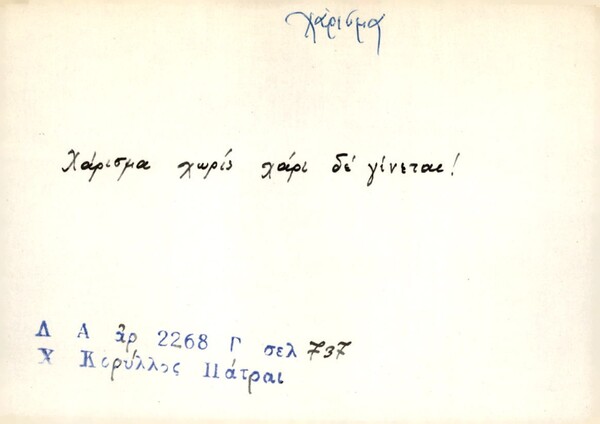 χάρισμα
Χάρισμα χωρίς χάρι δέ γίνεται!
Λ Α ἀρ 2268 Γ σελ 737
Χ Κορύλλος Πάτραι